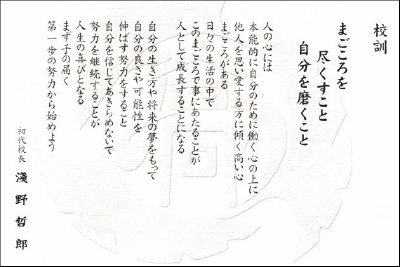 校訓
まごころを
尽くすこと
自分を磨くこと
人の心には
本能的に自分のために働く心の上に
他人を思い愛する方に傾く高い心
まごころがある
日々の生活の中で
このまごころで事にあたることが
人として成長することになる
自分の生き方や将来の夢をもって
自分の良さや可能性を
伸ばす努力をすること
自分を信じてあきらめないで
努力を継続することが
人生の喜びとなる
まず手の届く
第一歩の努力から始めよう
初代校長
淺野哲郎